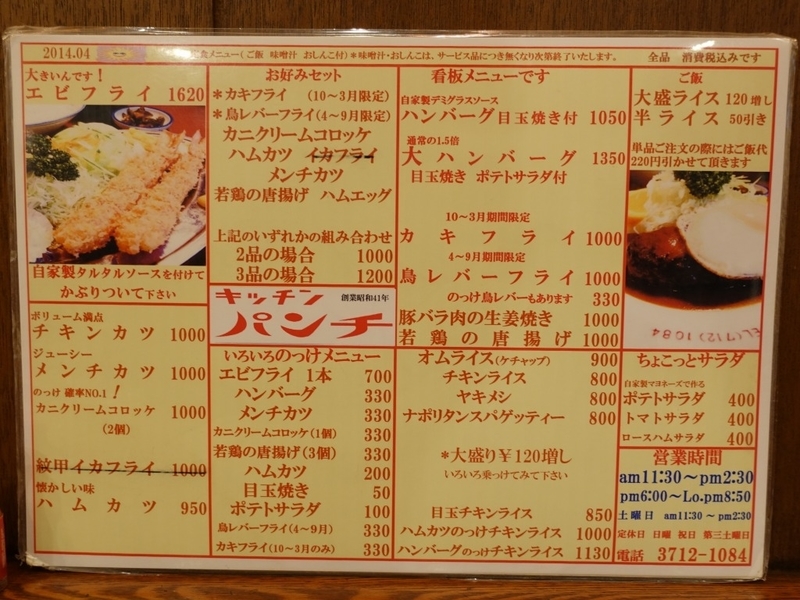 2014.04
食メニュー(ご飯 味噌汁 おしんこ付)*味噌汁・おしんこは、サービス品につき無くなり次第終了いたします。 全品 消費税込みです
大きいんです！
エビフライ 1620
自家製タルタルソースを付けて
かぶりついて下さい
ボリューム満点
チキンカツ 1000
ジューシー
メンチカツ 1000
のっけ 確率NO.1！
カニクリームコロッケ 1000
(2個)
紋甲イカフライ 1000
懐かしい味
ハムカツ 950
お好みセット
*カキフライ (10～3月限定)
*鳥レバーフライ(4～9月限定)
カニクリームコロッケ
ハムカツ イカフライ
メンチカツ
若鶏の唐揚げ ハムエッグ
上記のいずれかの組み合わせ
2品の場合 1000
3品の場合 1200
キッチン 創業昭和41年
パンチ
いろいろのっけメニュー
エビフライ 1本 700
ハンバーグ 330
メンチカツ 330
カニクリームコロッケ(1個) 330
若鶏の唐揚げ(3個) 330
ハムカツ 200
目玉焼き 50
ポテトサラダ 100
鳥レバーフライ(4～9月) 330
カキフライ(10～3月のみ) 330
看板メニューです
自家製デミグラスソース
ハンバーグ目玉焼き付 1050
通常の1.5倍
大ハンバーグ 1350
目玉焼き ポテトサラダ付
10～3月期間限定
カキフライ 1000
4～9月期間限定
鳥レバーフライ 1000
のっけ鳥レバーもあります 330
豚バラ肉の生姜焼き 1000
若鶏の唐揚げ 1000
オムライス(ケチャップ) 900
チキンライス 800
ヤキメシ 800
ナポリタンスパゲッティー 800
*大盛り￥120増し
いろいろ乗っけてみて下さい
目玉チキンライス 850
ハムカツのっけチキンライス 1000
ハンバーグのっけチキンライス 1130
ご飯
大盛ライス 120増し
半ライス 50引き
単品ご注文の際にはご飯代
220円引かせて頂きます
EL(712)1084
ちょこっとサラダ
自家製マヨネーズで作る
ポテトサラダ 400
トマトサラダ 400
ロースハムサラダ 400
営業時間
am11:30～pm2:30
pm6:00～Lo.pm8:50
土曜日 am11:30～pm2:30
定休日 日曜 祝日 第三土曜日
電話 3712-1084